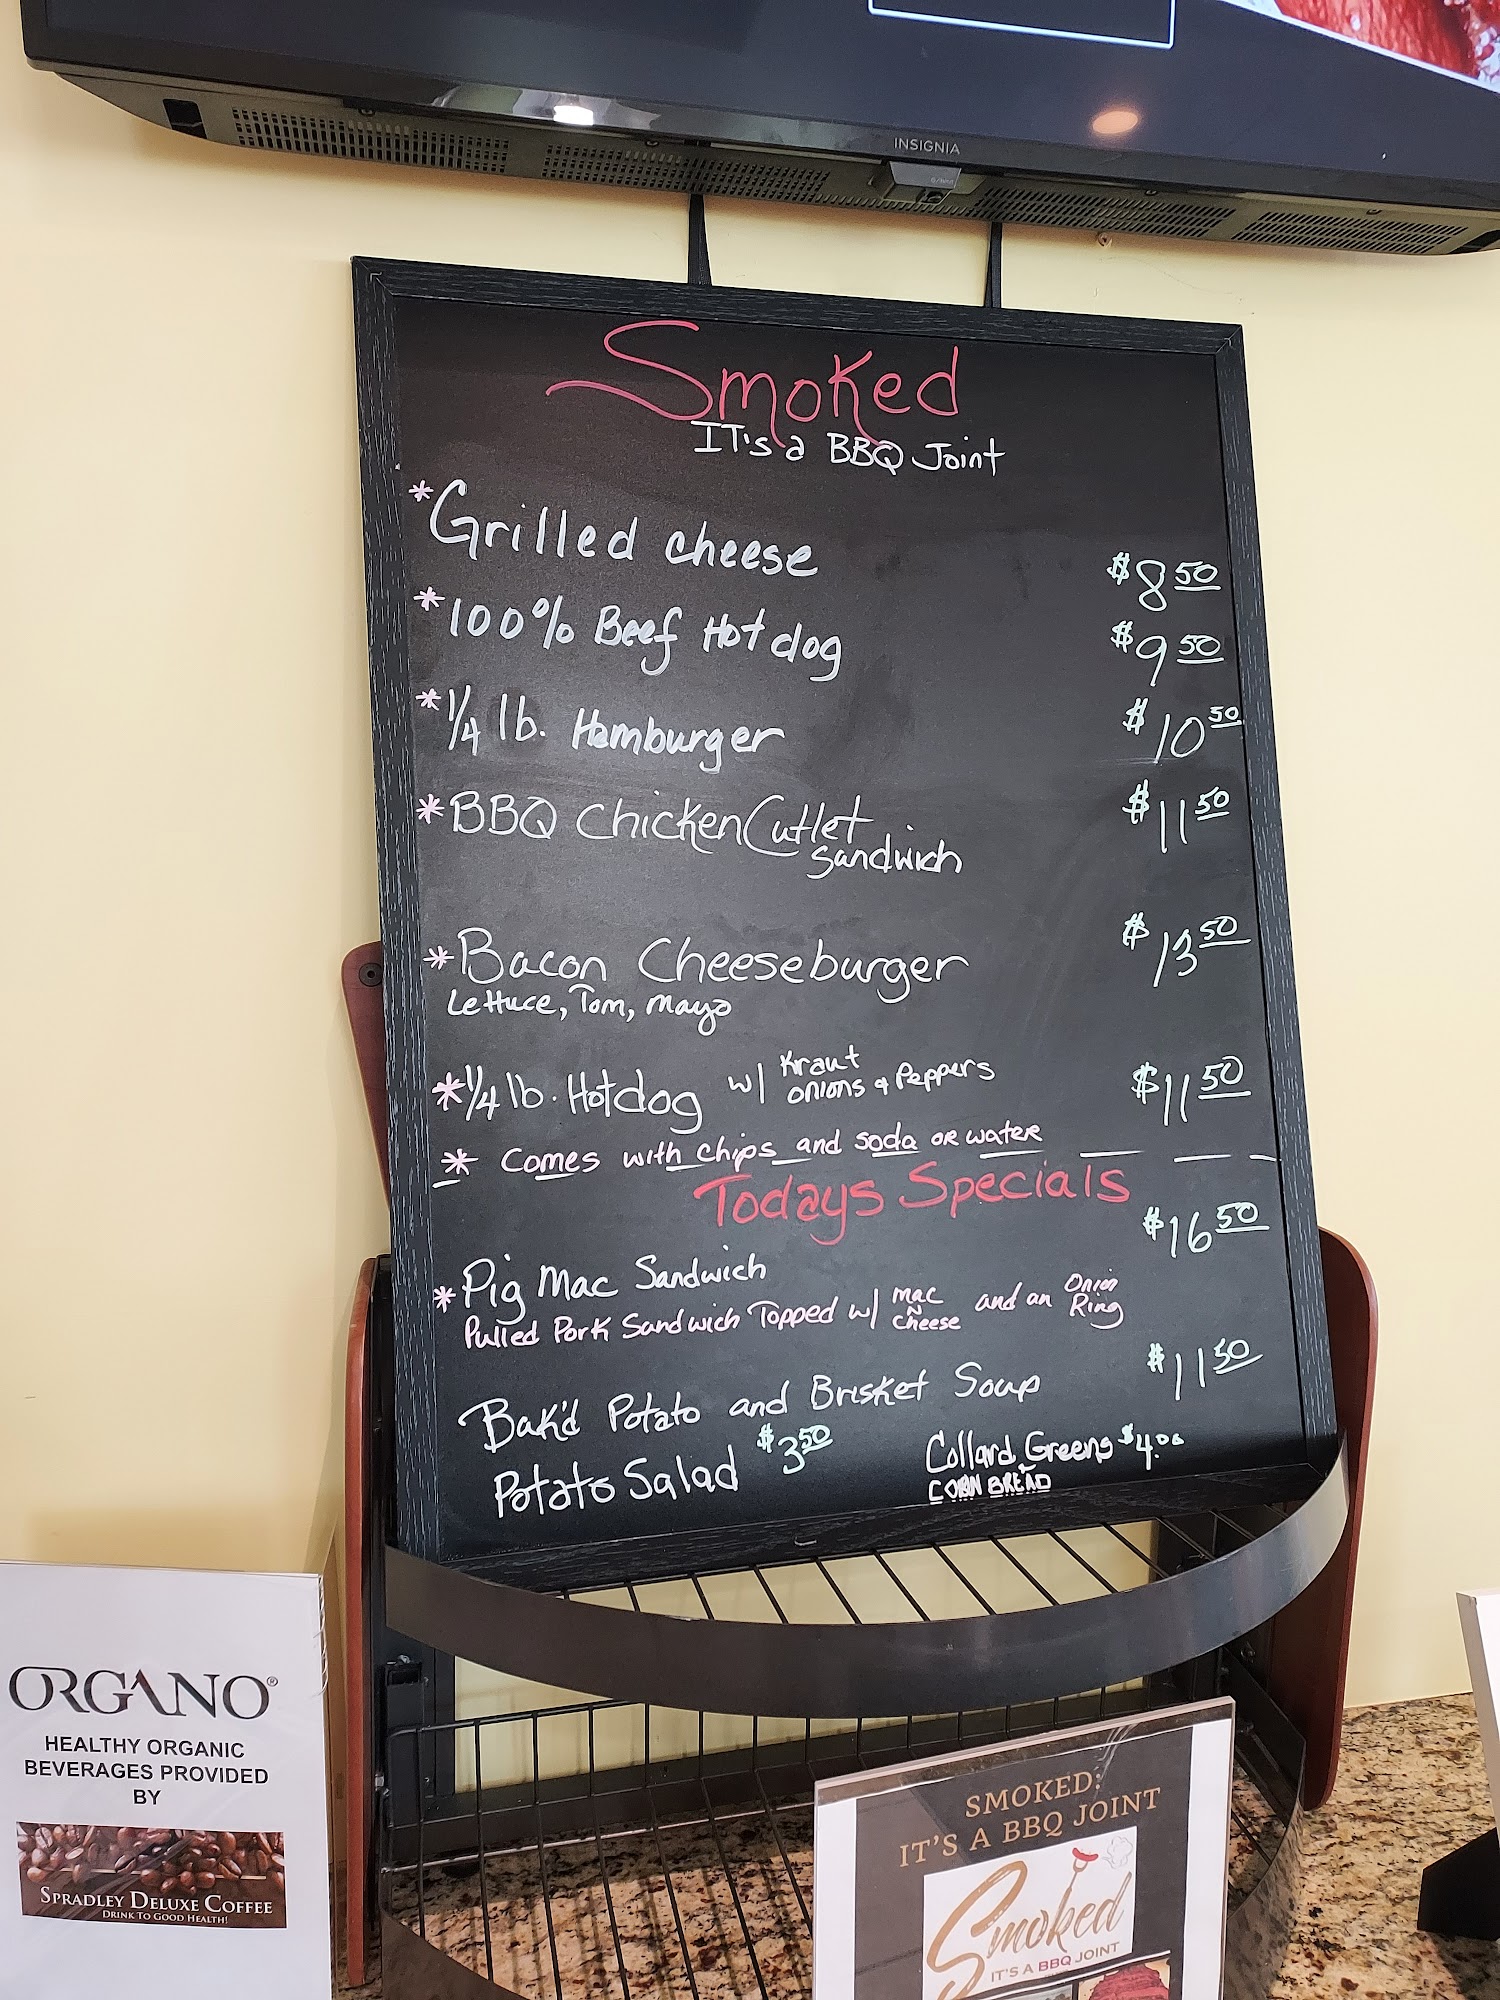 INSIGNIA
Smoked
IT's a BBQ Joint
*Grilled cheese $8 50
*100% Beef Hot dog $9 50
*1/4 lb. Hamburger $10 50
*BBQ Chicken Cutlet $11 50
Sandwich
*Bacon Cheeseburger $13 50
Lettuce, Tom, Mayo
*1/4 lb. Hotdog w/ Kraut $11 50
onions & Peppers
* Comes with chips and soda or water
Todays Specials
*Pig Mac Sandwich $16 50
Pulled Pork Sandwich Topped w/ mac n cheese and an Onion Ring
Bak'd Potato and Brisket Soup $11 50
Potato Salad $3 50 Collard Greens $4.00
CORN BREAD
ORGANO®
HEALTHY ORGANIC
BEVERAGES PROVIDED
BY
SPRADLEY DELUXE COFFEE
DRINK TO GOOD HEALTH!
SMOKED:
IT'S A BBQ JOINT
Smoked
IT'S A BBQ JOINT